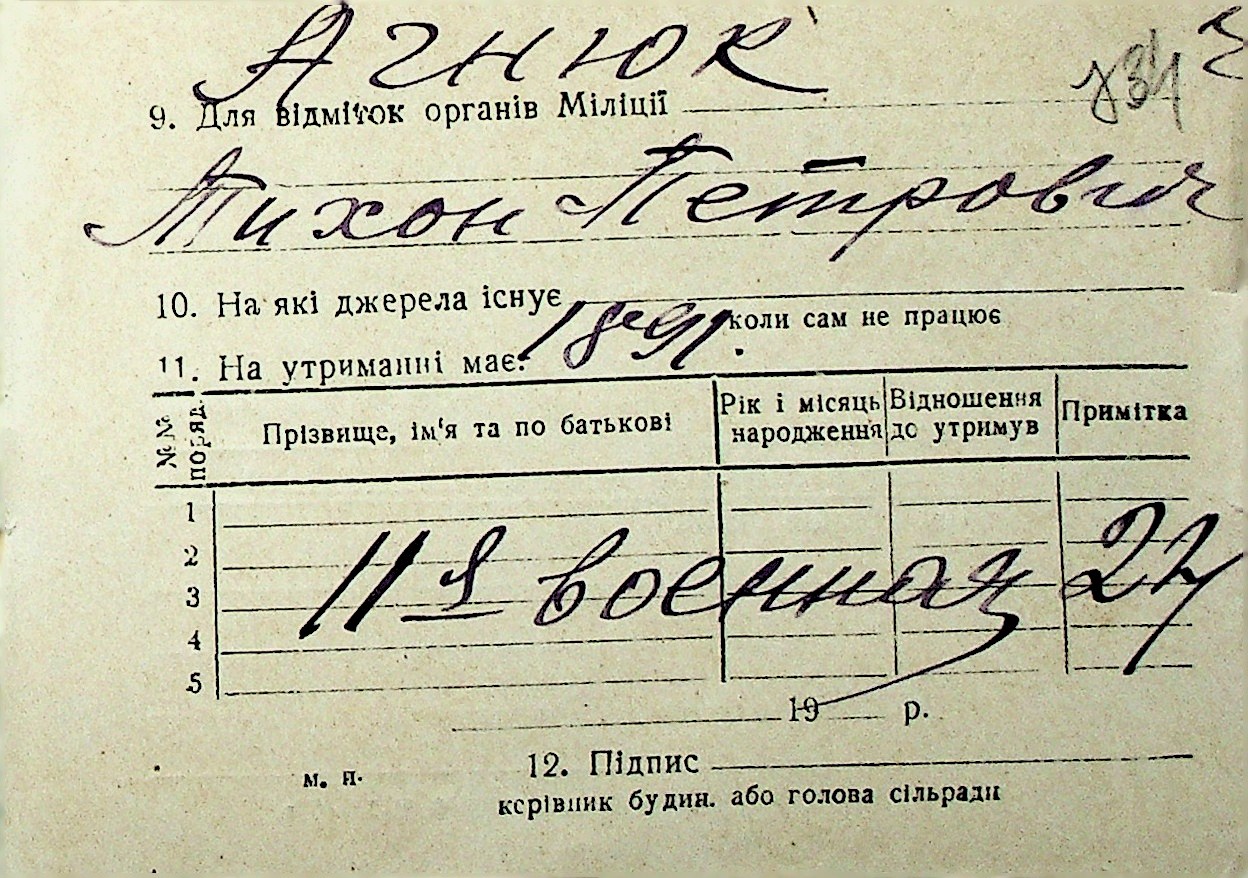 Агнюк
9. Для відміток органів Міліції
Тихон Петрович
10. На які джерела існує
1891.
коли сам не працює
11. На утриманні має:
№№ поряд.
Прізвище, ім‘я та по батькові
Рік і місяць народження
Відношення до утримув
Примітка
1
2
3
4
5
11я военная 24
19 р.
м. п.
12. Підпис
керівник будин. або голова сільради